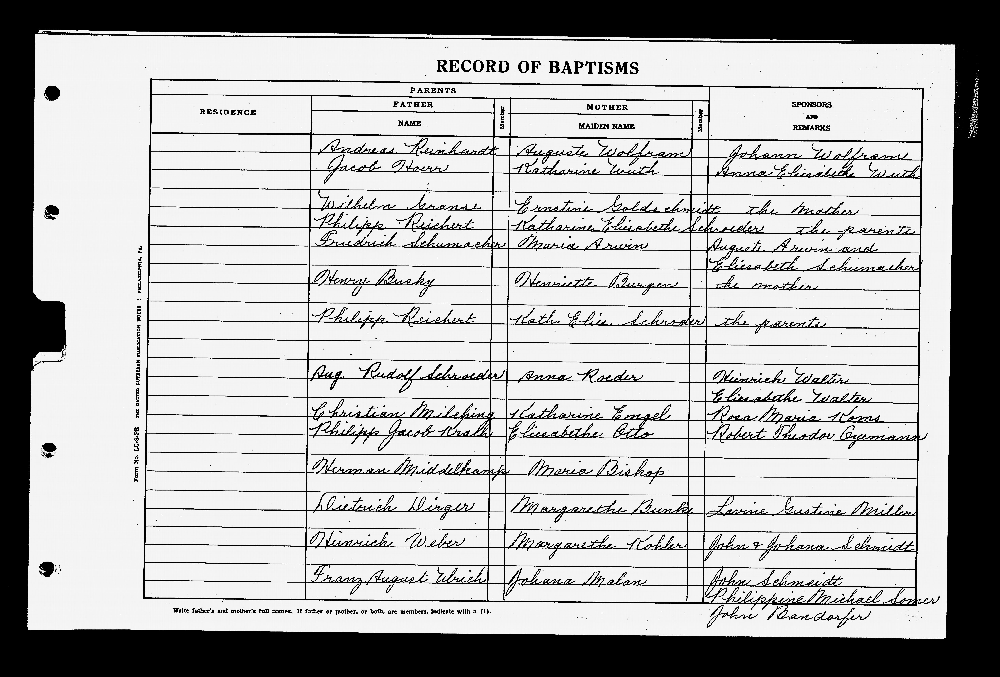 RECORD OF BAPTISMS
PARENTS
RESIDENCE FATHER Member MOTHER Member SPONSORS AND REMARKS
NAME MAIDEN NAME
Andreas Reinhardt Auguste Wolfram Johann Wolfram
Jacob Hoerr Katharine Wuth Anna Elisabethe Wuth
Wilhelm Granse Ernstine Goldschmidt the Mother
Philipp Reichert Katharine Elisabethe Schroeder the parents
Friedrich Schumacher Maria Arwin Auguste Arwin and
Elisabeth Schumacher
Henry Busky Henriette Burgen the mother
Philipp Reichert Kath Elis. Schroder the parents
Aug. Rudolf Schroeder Anna Roeder Heinrich Walter
Elisabethe Walter
Christian Milsching Katharine Engel Rosa Maria Koms
Philipp Jacob Kralh Elisabethe Otto Robert Theodor
Herman Middelkamp Maria Bishop
Dietrich Dirger Margarethe Bunke Lavine Gustine Miller
Heinrich Weber Margarethe Kohler John & Johana Schmidt
Franz August Ulrich Johana Malan John Schmidt
Philippine Michael Somer
John Bandorfer
Write father's and mother's full names. If father or mother, or both, are members, indicate with a (1).
Form No.